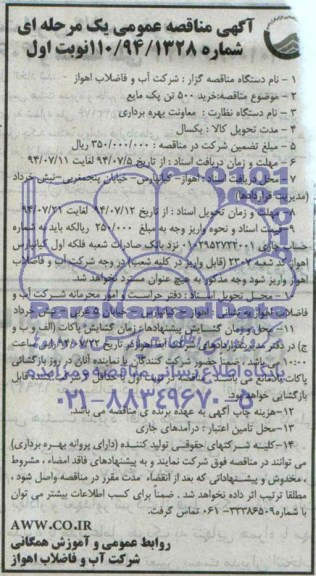 آگهی مناقصه عمومی یک مرحله ای
شماره ۱۱۰/۹۴/۱۳۲۸نوبت اول
۱ – نام دستگاه مناقصه گزار : شرکت آب و فاضلاب اهواز
۲ – موضوع مناقصه:خرید ۵۰۰ تن پک مایع
۳ – نام دستگاه نظارت : معاونت بهره برداری
۴ – مدت تحویل کالا : یکسال
۵ – مبلغ تضمین شرکت در مناقصه : ۳۵۰/۰۰۰/۰۰۰ ریال
۶ – مهلت و زمان دریافت اسناد : از تاریخ ۹۴/۰۷/۵ لغایت ۹۴/۰۷/۱۱
۷ – محل دریافت اسناد: اهواز- کیانپارس- خیابان پنجم غربی-نبش خرداد
(مدیریت قراردادها)
۸ – مهلت و زمان تحویل اسناد : از تاریخ ۹۴/۰۷/۱۲ لغایت ۹۴/۰۷/۲۱
۹ – قیمت اسناد و نحوه واریز وجه به مبلغ ۲۵۰/۰۰۰ ریالکه باید به شماره
حساب جاری نزد بانک صادرات شعبه فلکه اول کیانپارس
اهواز کد شعبه ۲۳۰۷ (قابل واریز در کلیه شعب) در وجه شرکت آب و فاضلاب
اهواز واریز شود وجه مذکور به هیچ عنوان مسترد نخواهد شد.
۱۰ – محل تحویل اسناد : دفتر حراست و امور محرمانه شرکت آب و
فاضلاب اهواز به نشانی : اهواز – کیانپارس – خیابان غربی – نبش خرداد
۱۱ – محل و زمان گشایش پیشنهادها: زمان گشایش پاکات (الف و ب و
ج) در دفتر مدیر قراردادهای شرکت آبفا اهواز مورخ ۹۴/۰۷/۲۲ راس ساعت
۱۰:۰۰ می باشد ، ضمناً حضور شرکت کنندگان یا نماینده آنان در روز بازگشائی
پاکات بلامانع می باشد مناقصه در نوبت اول با حداقل شرکت کننده قابل
بازگشایی خواهد بود.
۱۲–هزینه چاپ آگهی به عهده برنده ی مناقصه می باشد.
۱۳–محل تامین اعتبار : درآمدهای جاری
۱۴–کلیه شرکتهای حقوقی تولید کننده (دارای پروانه بهره برداری)
می توانند در مناقصه فوق شرکت نمایند و به پیشنهادهای فاقد امضاء ، مشروط
، مخدوش و پیشنهاداتی که بعد از انقضاء مدت مقرر در مناقصه واصل شود ،
مطلقا ترتیب اثر داده نخواهد شد . ضمناً برای کسب اطلاعات بیشتر می توان
با شماره ۳۳۳۸۶۵۰۹– ۰۶۱ تماس گرفت.
AWW.CO.IR
روابط عمومی و آموزش همگانی
شرکت آب و فاضلاب اهواز
پایگاه اطلاع رسانی مناقصه و مزایده
۰۲۱-۸۸۳۴۹۶۷۰-۵